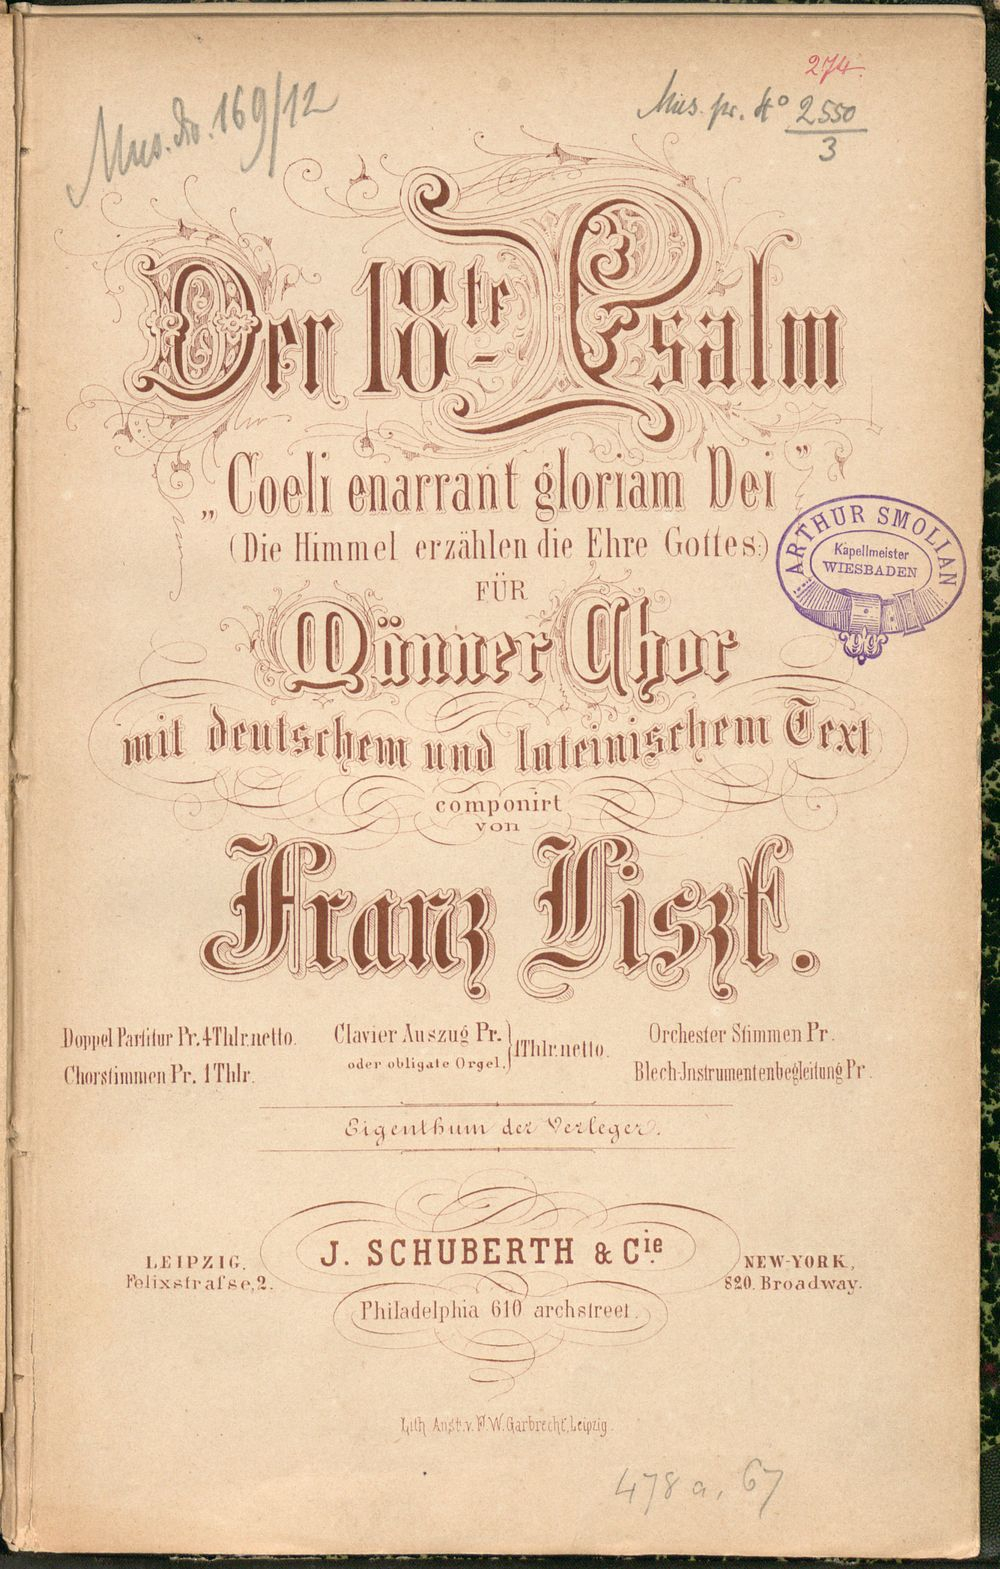 274.
Mus. No. 169/12
Mus. pr. 4° 2550
3
Der 18te Psalm
„Coeli enarrant gloriam Dei”
(Die Himmel erzählen die Ehre Gottes:)
FÜR
Männer Chor
mit deutschem und lateinischem Text
componirt
von
Franz Liszt.
ARTHUR SMOLIAN
Kapellmeister
WIESBADEN
Doppel Partitur Pr. 4 Thlr. netto.
Chorstimmen Pr. 1 Thlr.
Clavier Auszug Pr.
oder obligate Orgel.
1 Thlr. netto.
Orchester Stimmen Pr.
Blech-Instrumentenbegleitung Pr.
Eigenthum der Verleger.
J. SCHUBERTH & Cie.
LEIPZIG.
Felixstraſse, 2.
NEW-YORK,
820. Broadway.
Philadelphia 610 archstreet.
Lith. Anst. v. F. W. Garbrecht, Leipzig.
478 a, 67